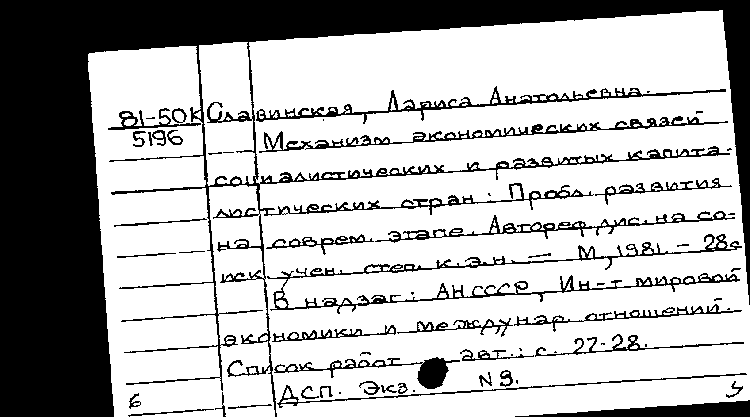 81-50К Славинская, Лариса Анатольевна.
5196 Механизм экономических связей
социалистических и развитых капита-
листических стран: Пробл. развития
на соврем. этапе. Автореф. дис. на со-
иск. учен. степ. к.э.н. — М., 1981. - 28с
В надзаг.: АН СССР, Ин-т мировой
экономики и междунар. отношений.
Список работ авт.: с. 27-28.
6 ДСП. Экз. N 9.